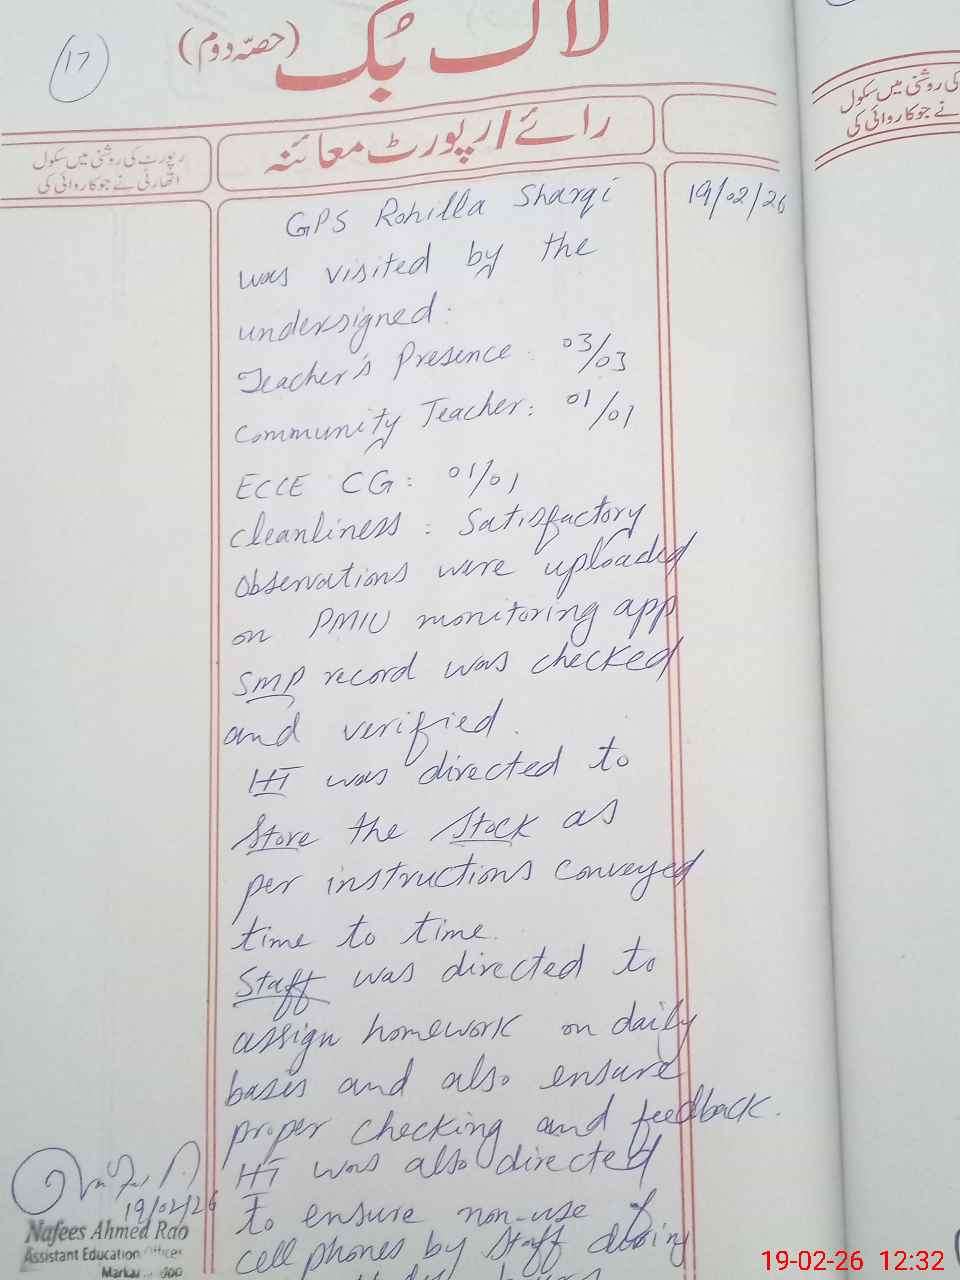 17
لاگ بُک (حصّہ دوم)
رائے/رپورٹ معائنہ
رپورٹ کی روشنی میں سکول
اتھارٹی نے جو کاروائی کی
کی روشنی میں سکول
نے جو کاروائی کی
19/02/26
GPS Rohilla Sharqi
was visited by the
undersigned.
Teacher's Presence : 03/03
Community Teacher: 01/01
ECCE CG: 01/01
cleanliness : Satisfactory
observations were uploaded
on PMIU monitoring app
SMP record was checked
and verified.
HT was directed to
Store the Stock as
per instructions conveyed
time to time.
Staff was directed to
assign homework on daily
basis and also ensure
proper checking and feedback.
HT was also directed
to ensure non-use of
cell phones by staff during
19/02/26
Nafees Ahmed Rao
Assistant Education Officer
19-02-26 12:32